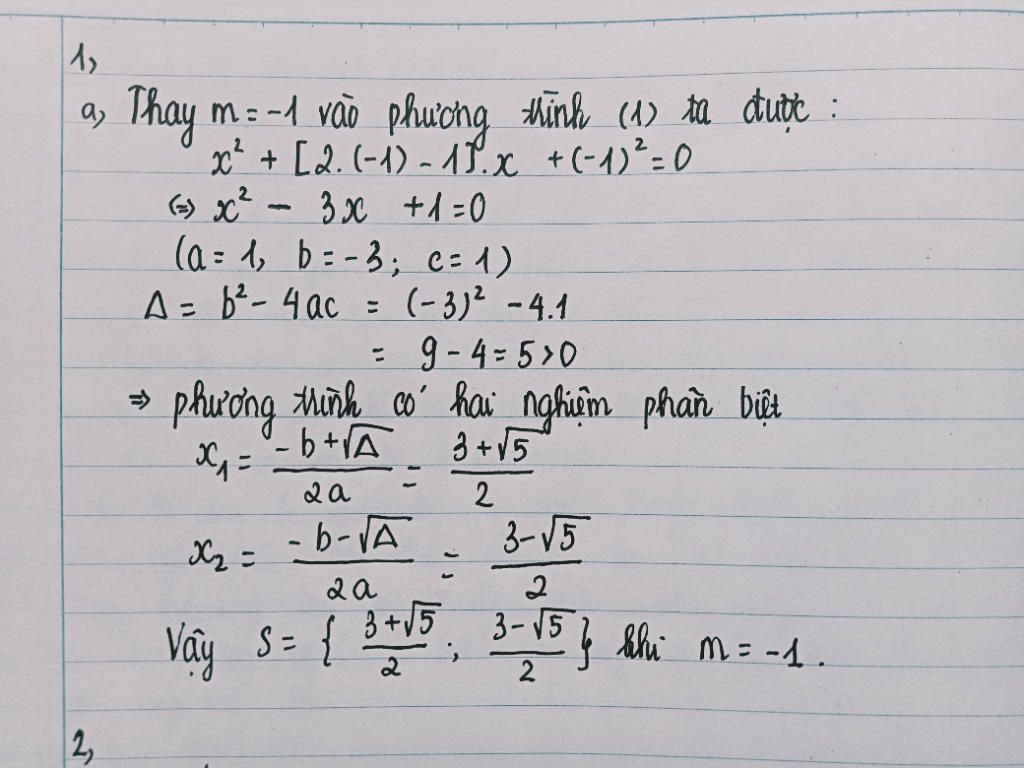 1,
a, Thay m = -1 vào phương trình (1) ta được :
x² + [2.(-1) - 1].x + (-1)² = 0
(=) x² - 3x + 1 = 0
(a = 1, b = -3; c = 1)
Δ = b² - 4ac = (-3)² - 4.1
= 9 - 4 = 5 > 0
⇒ phương trình có hai nghiệm phân biệt
x₁ = (-b + √Δ)/(2a) = (3 + √5)/2
x₂ = (-b - √Δ)/(2a) = (3 - √5)/2
Vậy S = { (3 + √5)/2 ; (3 - √5)/2 } khi m = -1.
2,